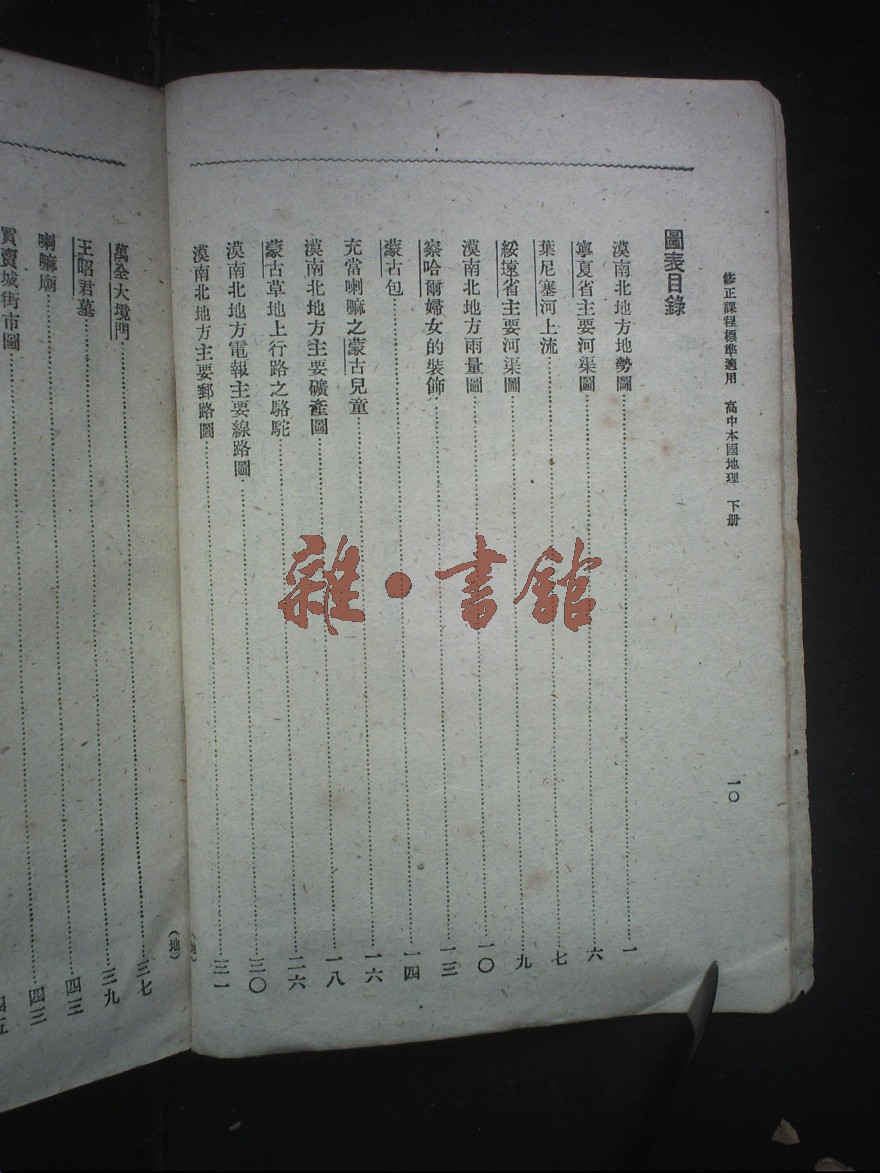 修正課程標準適用 高中本國地理 下册
一〇
圖表目錄
漠南北地方地勢圖……一
寧夏省主要河渠圖……六
葉尼塞河上流……七
綏遠省主要河渠圖……九
漠南北地方雨量圖……一〇
察哈爾婦女的裝飾……一三
蒙古包……一四
充當喇嘛之蒙古兒童……一六
漠南北地方主要礦產圖……一八
蒙古草地上行路之駱駝……二六
漠南北地方電報主要線路圖……三〇
漠南北地方主要郵路圖……三一
(地)
(地)
萬全大境門……三七
王昭君墓……三九
喇嘛廟……四三
買賣城街市圖……四三
四五
雜·書館